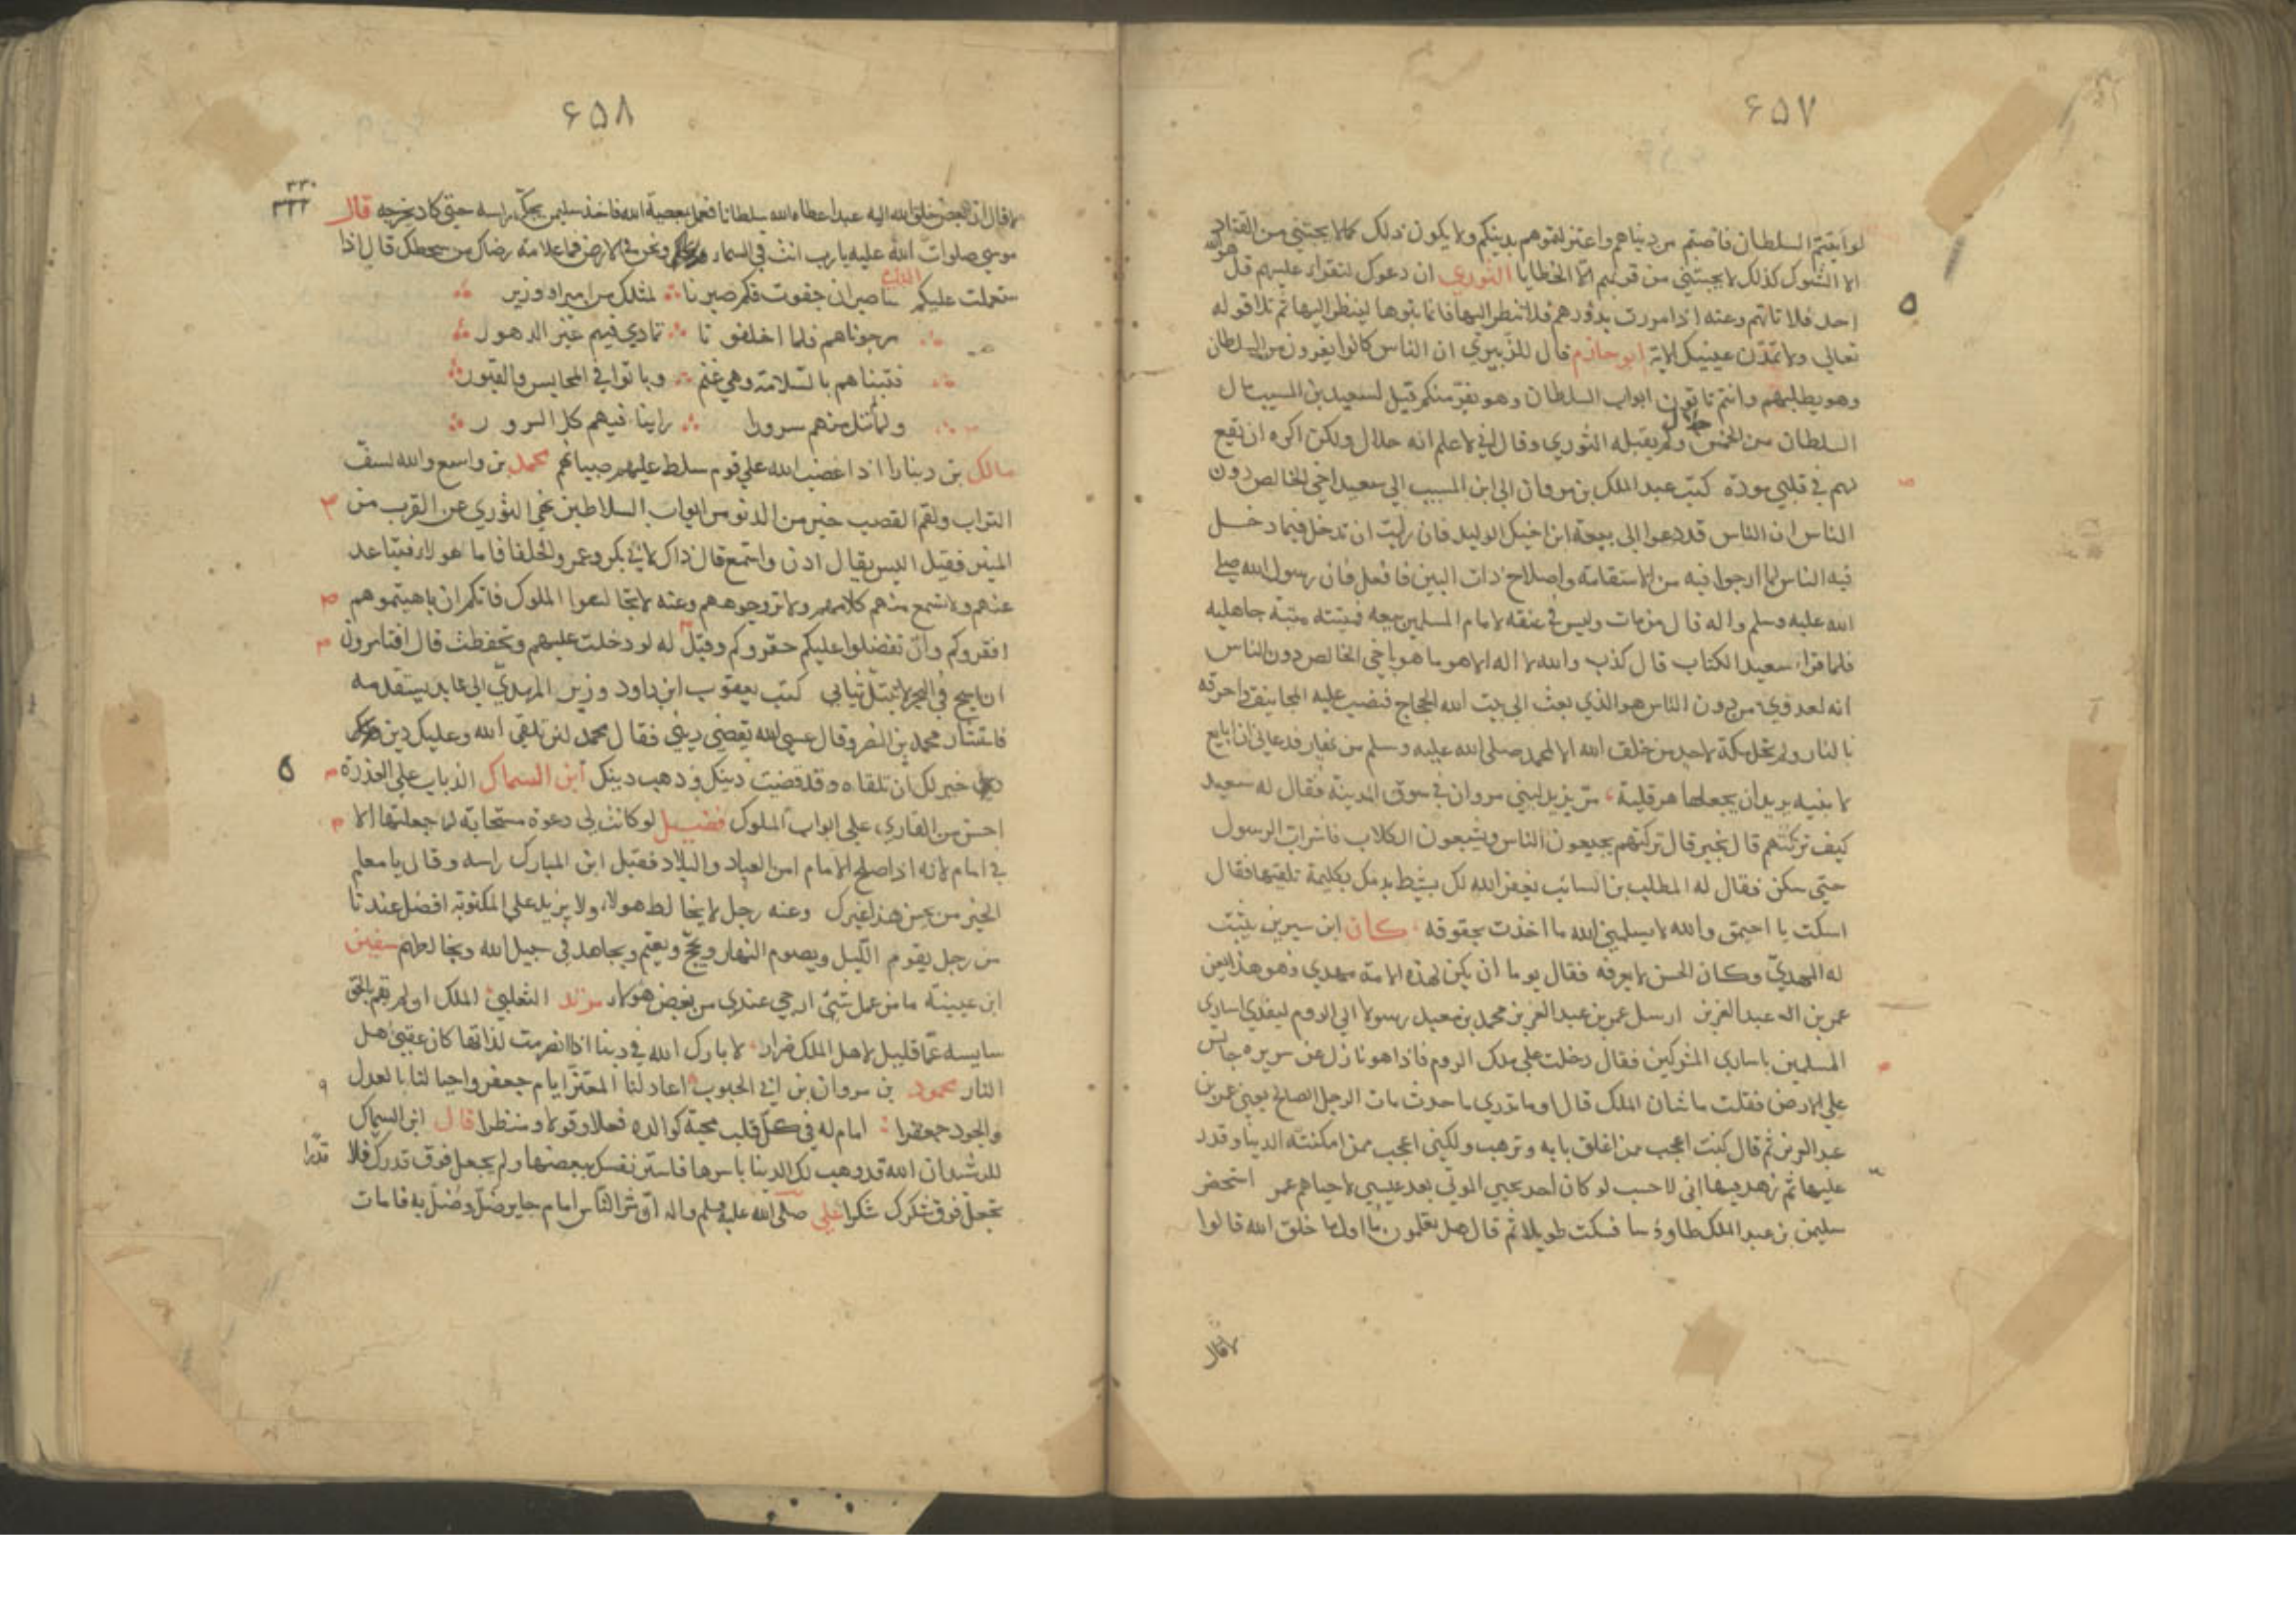 ۶۵۷
السلطان فاصبتم من دنياهم واعتزلتموهم بدينكم ولا يكون ذلك كما لا يجتنى من القتاد
الا الشوك كذلك لا يجتنى من قربهم الا الخطايا الثوري ان دعوك لتقراء عليهم قل هو الله
احد فلا تاتهم وعنه اذا مررت بدورهم فلا تنظر اليها فانما بنوها لينظر اليها ثم تلا قوله
تعالى ولا تمدّن عينيك الاية ابو حازم قال للزهري ان الناس كانوا يفرون من السلطان
وهو يطلبهم وانتم تاتون ابواب السلطان وهو يفر منكم قيل لسعيد بن المسيب مال
السلطان من الخمس حلال ولم يقبله الثوري وقال اني لاعلم انه حلال ولكن اكره ان تقع
لهم في قلبي مودة كتب عبد الملك بن مروان الى ابن المسيب الى سعيد اخي الخالص دون
الناس ان الناس قد دعوا الى بيعة ابن اخيك الوليد فان رايت ان تدخل فيما دخل
فيه الناس لما ارجوا فيه من الاستقامة واصلاح ذات البين فافعل فان رسول الله صلى
الله عليه وسلم واله قال من مات وليس في عنقه لامام المسلمين بيعة فميتته ميتة جاهلية
فلما قراء سعيد الكتاب قال كذب والله لا اله الا هو ما هو باخي الخالص دون الناس
انه لعدوي من دون الناس هو الذي بعث الى بيت الله الحجاج فنصب عليه المجانيق واحرقه
بالنار ولم تحل مكة لاحد من خلق الله الا لمحمد صلى الله عليه وسلم من نهار فدعاني ان ابايع
لابنيه يريد ان يجعلها هرقلية، مرّ يزيد لبني مروان في سوق المدينة فقال له سعيد
كيف تركتهم قال بخير قال تركتهم يجيعون الناس ويشبعون الكلاب فاشراب الرسول
حتى سكن فقال له المطلب بن السائب يغفر الله لك بدمك بكليمة تلقيها فقال
اسكت يا احيمق والله لا يسلمني الله ما اخذت بحقوقه ، كان ابن سيرين يثبت
له المهديّ وكان الحسن لا يعرفه فقال يوما ان يكن لهذه الامة مهدي فهو هذا يعني
عمر بن عبد العزيز ارسل عمر بن عبد العزيز محمد بن معبد رسولا الى الروم ليفدي اسارى
المسلمين باسارى المشركين فقال دخلت على ملك الروم فاذا هو نازل عن سريره جالس
على الارض فقلت ما شان الملك قال او ما تدري ما حدث مات الرجل الصالح يعني عمر بن
عبد العزيز ثم قال كنت اعجب ممن اغلق بابه وترهب ولكني اعجب ممن امكنته الدنيا وقدر
عليها ثم زهد فيها اني لاحسب لو كان احد يحيي الموتى بعد عيسى لاحياهم عمر استحضر
سليمن بن عبد الملك طاوسا فسكت طويلا ثم قال هل تعلمون ما اول ما خلق الله قالوا
لا قال
۶۵۸
۳۳۰
۳۳۲
لا قال ان ابغض خلق الله اليه عبد اعطاه الله سلطانا فعمل بمعصية الله فاخذ سليمن يحكّ راسه حتى كاد يجرحه قال
موسى صلوات الله عليه يا رب انت في السماء ونحن في الارض فما علامة رضاك من سخطك قال اذا
ستعملت عليكم صبرنا ان جفوت فكم صبرنا لمثلك من امير او وزير
رجوناهم فلما اخلفونا تمادى فيهم غير الدهور
فبتنا بالسلامة وهي غنم وباتوا في المحابس والقبور
ولما لم ننل منهم سرورا راينا فيهم كل السرور
مالك بن دينار اذا غضب الله على قوم سلط عليهم صبيانهم محمد بن واسع والله لسفّ
التراب ولقم القصب خير من الدنو من ابواب السلاطين نهى الثوري عن القرب من
المنبر فقيل اليس يقال ادن واستمع قال ذاك لابي بكر وعمر والخلفا فاما هولاء فتباعد
عنهم ولا تسمع منهم كلامهم ولا تر وجوههم وعنه لا تخالطوا الملوك فانكم ان باهيتموهم
افقروكم وان تفضلوا عليكم حقروكم وقيل له لو دخلت عليهم وتحفظت قال افتامرون
ان اسبح في البحر لا تبتل ثيابي كتب يعقوب ابن داود وزير المهديّ الى عابد يستقدمه
فاستشار محمد بن النضر وقال عسى الله يقضي ديني فقال محمد لئن تلقى الله وعليك دين
خير لك ان تلقاه وقد قضيت دينك وذهب دينك ابن السماك الذباب على العذرة
احسن من القاري على ابواب الملوك فضيل لو كانت لي دعوة مستجابة لما جعلتها الا
في امام لانه اذا اصلح الامام امن العباد والبلاد فقبل ابن المبارك راسه وقال يا معلم
الخير من يحسن هذا غيرك وعنه رجل لا يخالط هولاء ولا يزيد على المكتوبة افضل عندنا
من رجل يقوم الليل ويصوم النهار ويحجّ ويعتمر ويجاهد في سبيل الله ويخالطهم سفين
ابن عيينة ما من عمل شئ ارجى عندي من بغض هولاء مزيد الثعلبي الملك ان لم تقم بالحق
سايسه عما قليل لاهل الملك ضرار لا بارك الله في دنيا اذا انصرمت لذاتها كان عقبى اهل
النار محمود بن مروان بن ابي الجنوب اعاد لنا المعتز ايام جعفر واحيا لنا بالعدل
والجود جعفرا امام له في كل قلب محبة كوالده فعلا وقولا ومنظرا قال ابن السماك
للرشيد ان الله قد وهب لك الدنيا باسرها فاستر نفسك ببعضها ولم يجعل فوق قدرك قدرا فلا
تجعل فوق شكرك شكرا علي صلى الله عليه وسلم واله ان شر الناس امام جاير ضلّ وضلّ به فامات